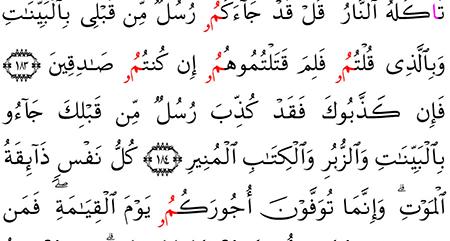 تَاكُلُهُ ا۬لنَّارُ قُلْ قَدْ جَآءَكُمُۥ رُسُلٌ مِّن قَبْلِى بِالْبَيِّنَـٰتِ
وَبِالَّذِى قُلْتُمُۥ فَلِمَ قَتَلْتُمُوهُمُۥ إِن كُنتُمُۥ صَـٰدِقِينَ ١٨٣
فَإِن كَذَّبُوكَ فَقَدْ كُذِّبَ رُسُلٌ مِّن قَبْلِكَ جَآءُو
بِالْبَيِّنَـٰتِ وَالزُّبُرِ وَالْكِتَـٰبِ الْمُنِيرِ ١٨٤ كُلُّ نَفْسٍ ذَآئِقَةُ
الْمَوْتِ ۗ وَإِنَّمَا تُوَفَّوْنَ أُجُورَكُمُۥ يَوْمَ الْقِيَـٰمَةِ ۖ فَمَن